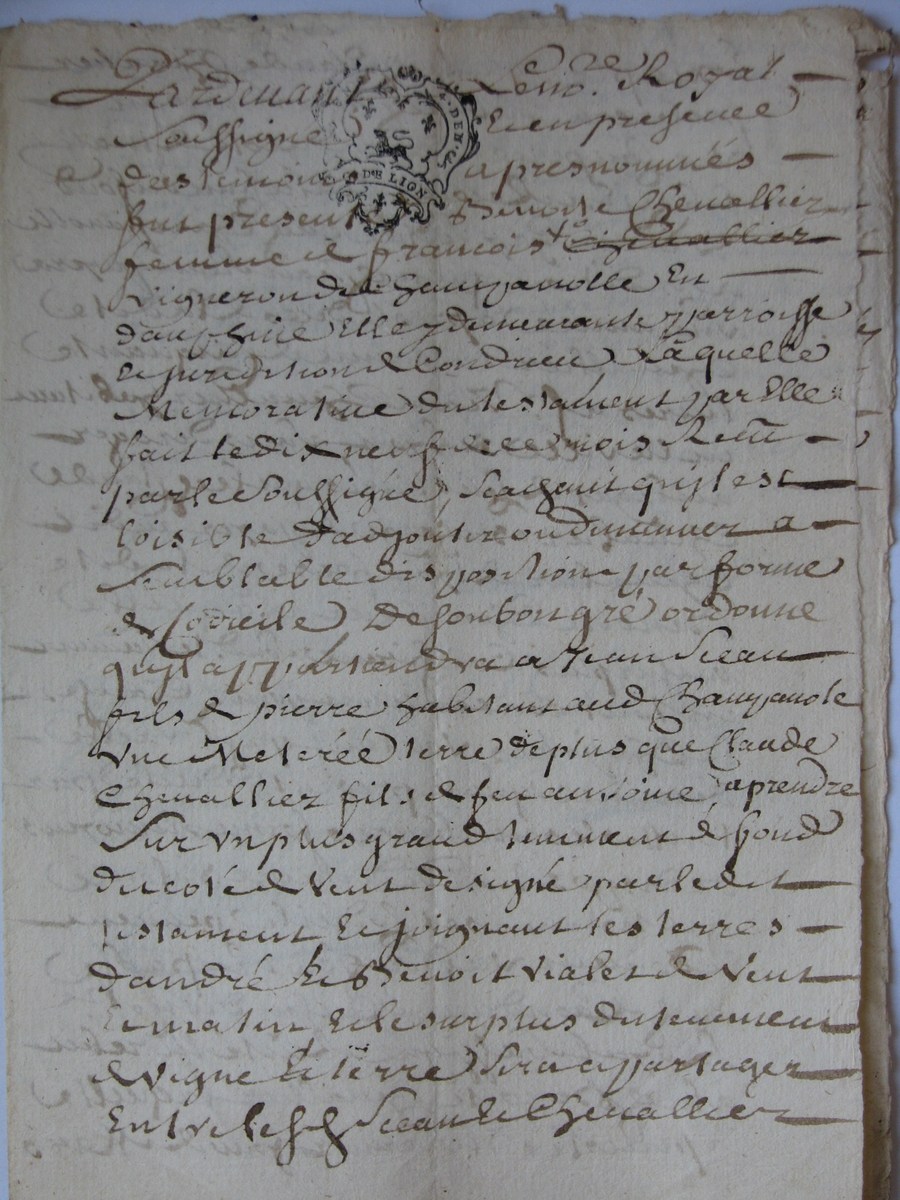 Pardevant Le no.re Royal
Soussigné Et en presence
des temoins apresnommés
fut presente Benoite Chevallier
femme de francois Chevallier
vigneron de Champanolle En
dauphiné Elle y demeurante parroisse
et jurediction de Condrieu Laquelle
Memorative du testament par Elle
fait le dix neuf de ce mois Receu
par le Soussigné, Scachant quil est
loisible d'adjouter ou diminuer a
Semblable disposition par forme
de Codicile De son bon gré ordonne
quil appartiendra a Jean Sceau
fils de pierre habitant aud Champanole
une Meterée terre de plus que Claude
Chevallier fils de feu antoine, a prendre
Sur un plus grand tennement de fond
du coté de Vent designé par le dit
testament Et joignant les terres
d'andré Et Benoit vialet de Vent
Et matin Et le surplus du tennement
de vigne Et terre Sera a partager
Entre lesd Sceau Et Chevallier
DEN.
DE LION